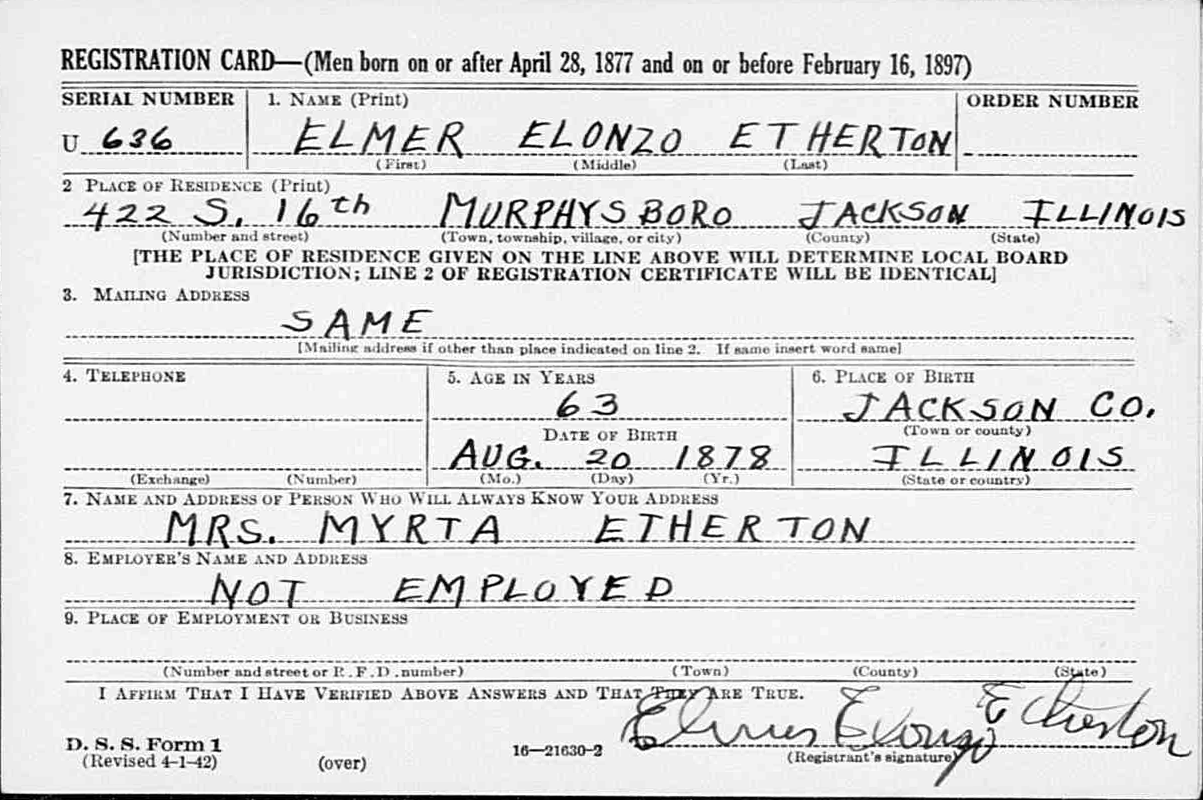 REGISTRATION CARD—(Men born on or after April 28, 1877 and on or before February 16, 1897)
SERIAL NUMBER 1. NAME (Print) ORDER NUMBER
U 636 ELMER ELONZO ETHERTON
(First) (Middle) (Last)
2 PLACE OF RESIDENCE (Print)
422 S. 16th MURPHYSBORO JACKSON ILLINOIS
(Number and street) (Town, township, village, or city) (County) (State)
[THE PLACE OF RESIDENCE GIVEN ON THE LINE ABOVE WILL DETERMINE LOCAL BOARD
JURISDICTION; LINE 2 OF REGISTRATION CERTIFICATE WILL BE IDENTICAL]
3. MAILING ADDRESS
SAME
[Mailing address if other than place indicated on line 2. If same insert word same]
4. TELEPHONE 5. AGE IN YEARS 6. PLACE OF BIRTH
63 JACKSON CO.
DATE OF BIRTH (Town or county)
AUG. 20 1878 ILLINOIS
(Exchange) (Number) (Mo.) (Day) (Yr.) (State or country)
7. NAME AND ADDRESS OF PERSON WHO WILL ALWAYS KNOW YOUR ADDRESS
MRS. MYRTA ETHERTON
8. EMPLOYER'S NAME AND ADDRESS
NOT EMPLOYED
9. PLACE OF EMPLOYMENT OR BUSINESS
(Number and street or R. F. D. number) (Town) (County) (State)
I AFFIRM THAT I HAVE VERIFIED ABOVE ANSWERS AND THAT THEY ARE TRUE.
Elmer Elonzo Etherton
D. S. S. Form 1
(Revised 4-1-42) (over) 16—21630-2 (Registrant's signature)